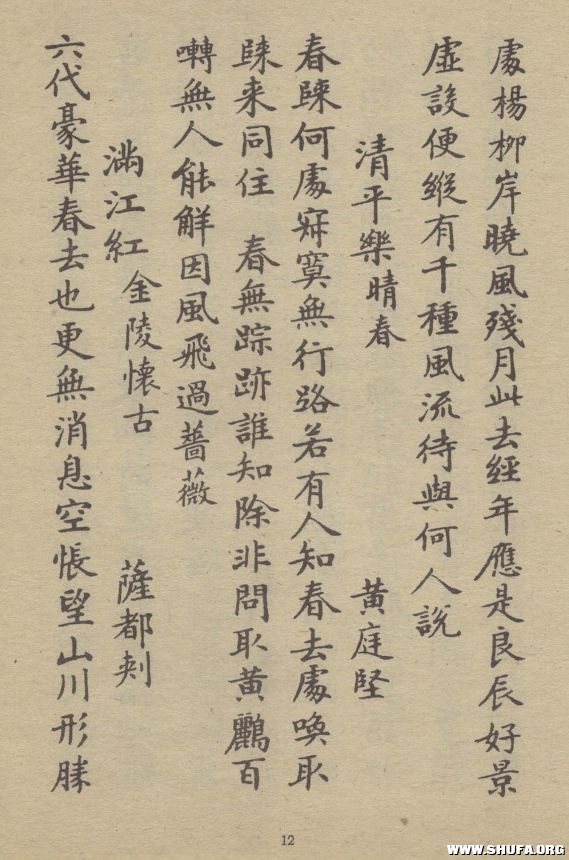 處楊柳岸曉風殘月此去經年應是良辰好景
虛設便縱有千種風流待與何人說
清平樂晴春 黃庭堅
春歸何處寂寞無行路若有人知春去處喚取
歸来同住 春無踪跡誰知除非問取黃鸝百
囀無人能解因風飛過薔薇
滿江紅 金陵懷古 薩都剌
六代豪華春去也更無消息空悵望山川形勝
12
WWW.SHUFA.ORG